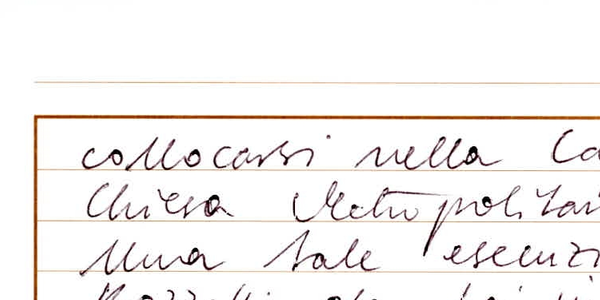 collocarsi nella Ca
Chiesa Metropolitan
Una tale esenzi